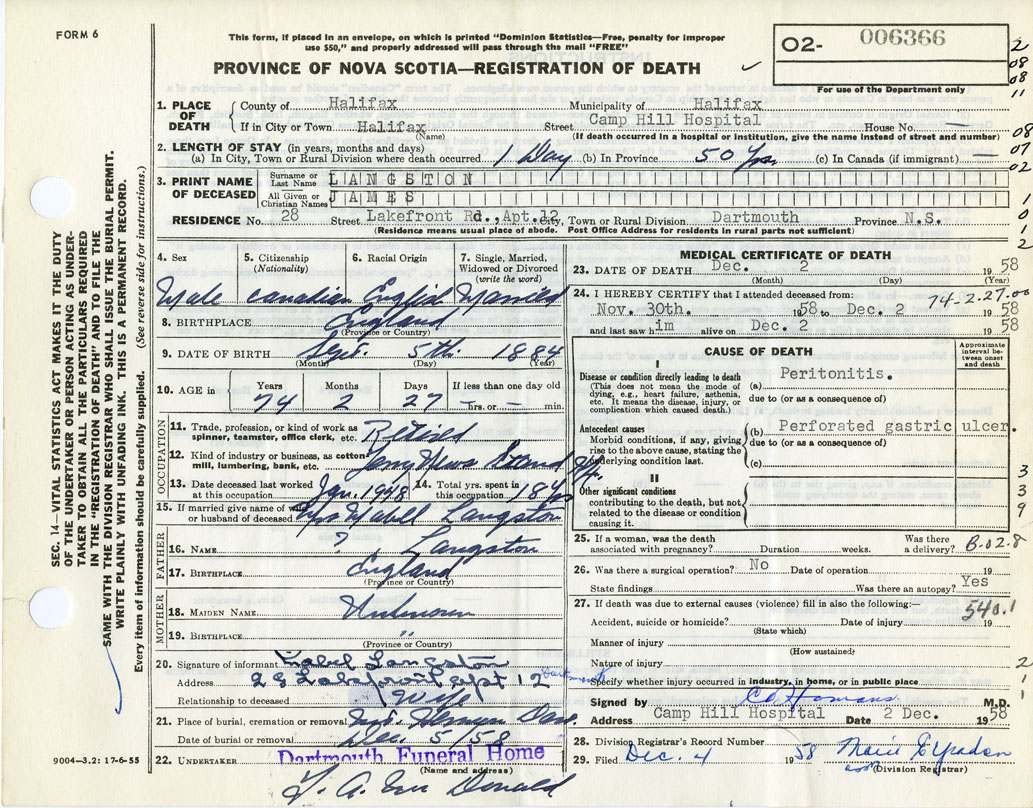 FORM 6
This form, if placed in an envelope, on which is printed "Dominion Statistics—Free, penalty for improper
use $50," and properly addressed will pass through the mail "FREE"
PROVINCE OF NOVA SCOTIA—REGISTRATION OF DEATH
O2- 006366
For use of the Department only
2
08
08
11
08
07
02
1
0
1
2
1. PLACE OF DEATH
County of Halifax Municipality of Halifax
If in City or Town Halifax Street Camp Hill Hospital House No. —
(Name) (If death occurred in a hospital or institution, give the name instead of street and number)
2. LENGTH OF STAY (in years, months and days)
(a) In City, Town or Rural Division where death occurred 1 Day (b) In Province 50 Yrs (c) In Canada (if immigrant) —
3. PRINT NAME OF DECEASED
Surname or Last Name LANGSTON
All Given or Christian Names JAMES
RESIDENCE No. 28 Street Lakefront Rd., Apt.12 City, Town or Rural Division Dartmouth Province N.S.
(Residence means usual place of abode. Post Office Address for residents in rural parts not sufficient)
4. Sex 5. Citizenship (Nationality) 6. Racial Origin 7. Single, Married, Widowed or Divorced (write the word)
Male Canadian English Married
8. BIRTHPLACE England
(Province or Country)
9. DATE OF BIRTH Sept. 5th 1884
(Month) (Day) (Year)
10. AGE in Years Months Days If less than one day old
74 2 27 — hrs. or — min.
OCCUPATION
11. Trade, profession or kind of work as spinner, teamster, office clerk, etc. Retired
12. Kind of industry or business, as cotton mill, lumbering, bank, etc. Ferry News Stand
13. Date deceased last worked at this occupation Jan. 1958 14. Total yrs. spent in this occupation 18 yrs
15. If married give name of wife or husband of deceased Mrs Mabel Langston
FATHER
16. NAME ? Langston
17. BIRTHPLACE England
(Province or Country)
MOTHER
18. MAIDEN NAME Unknown
19. BIRTHPLACE "
(Province or Country)
20. Signature of informant Mabel Langston
Address 28 Lakefront Apt 12 Dartmouth
Relationship to deceased Wife
21. Place of burial, cremation or removal
Date of burial or removal Dec. 5/58
22. UNDERTAKER Dartmouth Funeral Home
(Name and address)
Donald
9004—3.2: 17-6-55
SEC. 14—VITAL STATISTICS ACT MAKES IT THE DUTY
OF THE UNDERTAKER OR PERSON ACTING AS UNDER-
TAKER TO OBTAIN ALL THE PARTICULARS REQUIRED
IN THE "REGISTRATION OF DEATH" AND TO FILE THE
SAME WITH THE DIVISION REGISTRAR WHO SHALL ISSUE THE BURIAL PERMIT.
WRITE PLAINLY WITH UNFADING INK. THIS IS A PERMANENT RECORD.
Every item of information should be carefully supplied. (See reverse side for instructions.)
MEDICAL CERTIFICATE OF DEATH
23. DATE OF DEATH Dec. 2 1958
(Month) (Day) (Year)
24. I HEREBY CERTIFY that I attended deceased from:
74-2-27.00
Nov. 30th. 1958 to Dec. 2 1958
and last saw him alive on Dec. 2 1958
CAUSE OF DEATH
Approximate interval between onset and death
I
Disease or condition directly leading to death
(This does not mean the mode of dying, e.g., heart failure, asthenia, etc. It means the disease, injury, or complication which caused death.)
(a) Peritonitis.
due to (or as a consequence of)
Antecedent causes
Morbid conditions, if any, giving rise to the above cause, stating the underlying condition last.
(b) Perforated gastric ulcer.
due to (or as a consequence of)
(c)
II
Other significant conditions
contributing to the death, but not related to the disease or condition causing it.
3
3
9
25. If a woman, was the death associated with pregnancy? Duration weeks. Was there a delivery? B.02.8
26. Was there a surgical operation? No Date of operation 19
State findings Was there an autopsy? Yes
27. If death was due to external causes (violence) fill in also the following:— 540.1
Accident, suicide or homicide? Date of injury 19
(State which)
Manner of injury
(How sustained)
Nature of injury 2
Specify whether injury occurred in industry, in home, or in public place 1
Signed by M.D. 1
Address Camp Hill Hospital Date 2 Dec. 1958
28. Division Registrar's Record Number
29. Filed Dec. 4 1958
(Division Registrar)